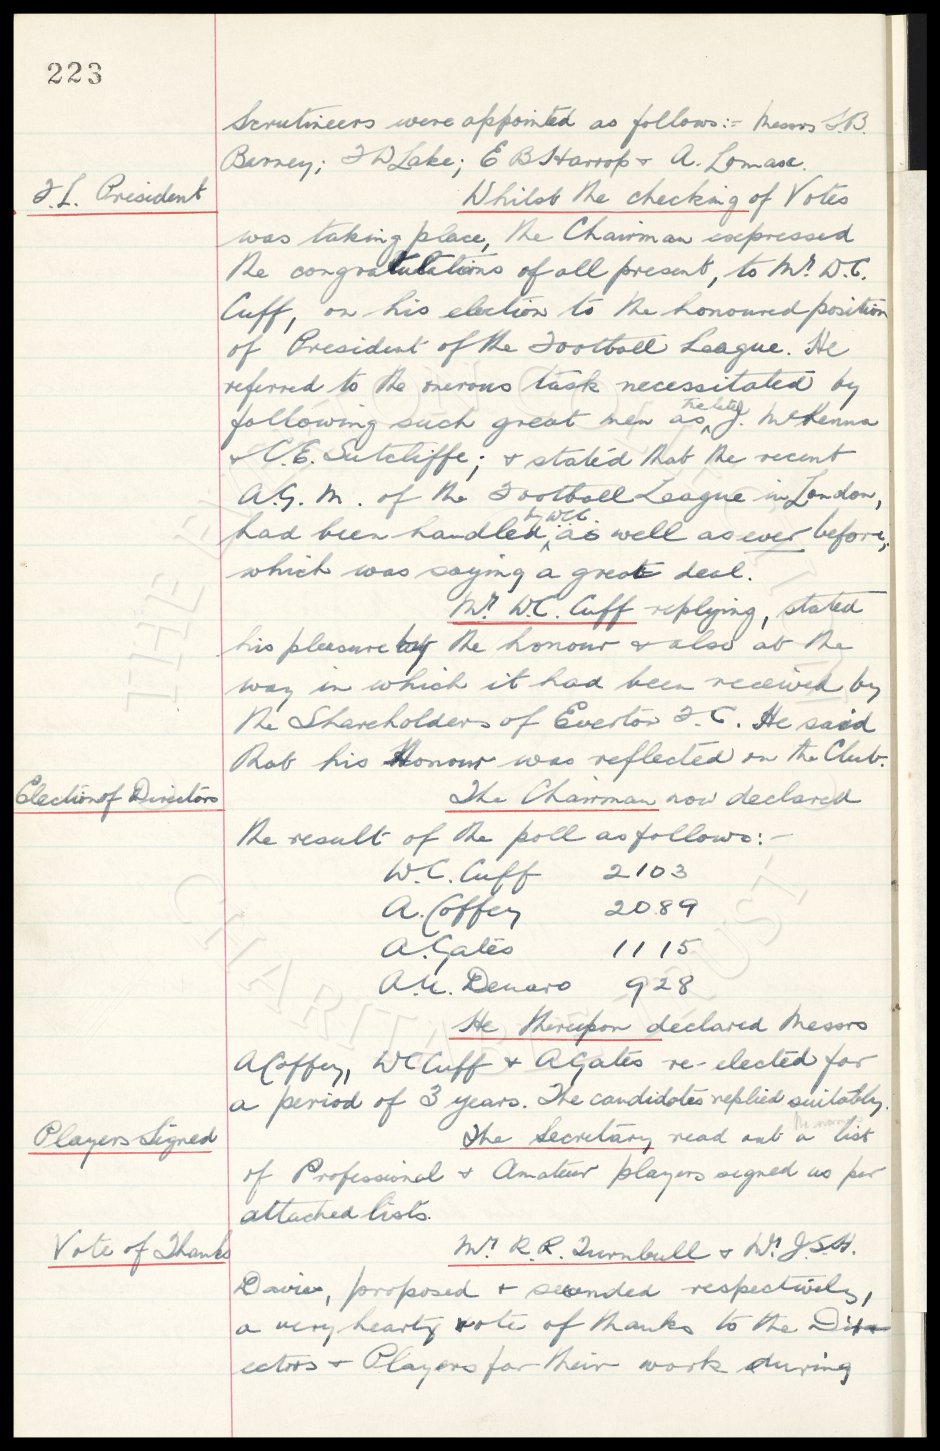 223
Scrutineers were appointed as follows:- Messrs S.B.
Berney; F W Lake; E B Harrop & A. Lomax.
F.L. President
Whilst the checking of Votes
was taking place, the Chairman expressed
the congratulations of all present, to Mr. W.C.
Cuff, on his election to the honoured position
of President of the Football League. He
referred to the onerous task necessitated by
following such great men as, the late J. McKenna
& C.E. Sutcliffe; & stated that the recent
A.G.M. of the Football League in London,
had been handled by WCC as well as ever before,
which was saying a great deal.
Mr. W.C. Cuff replying, stated
his pleasure at the honour & also at the
way in which it had been received by
the Shareholders of Everton F.C. He said
that his Honour was reflected on the Club.
Election of Directors
The Chairman now declared
the result of the poll as follows:-
W.C. Cuff 2103
A. Coffey 2089
A. Gates 1115
A.N. Denaro 928
He thereupon declared Messrs
A Coffey, WC Cuff & A Gates re-elected for
a period of 3 years. The candidates replied suitably.
Players Signed
The Secretary read out a list
of Professional & Amateur players signed as per
attached lists.
Vote of Thanks
Mr. R.R. Turnbull & Mr. J.S.H.
Davies, proposed & seconded respectively,
a very hearty vote of thanks to the Dir-
ectors & Players for their work during
THE EVERTON COLLECTION
CHARITABLE TRUST